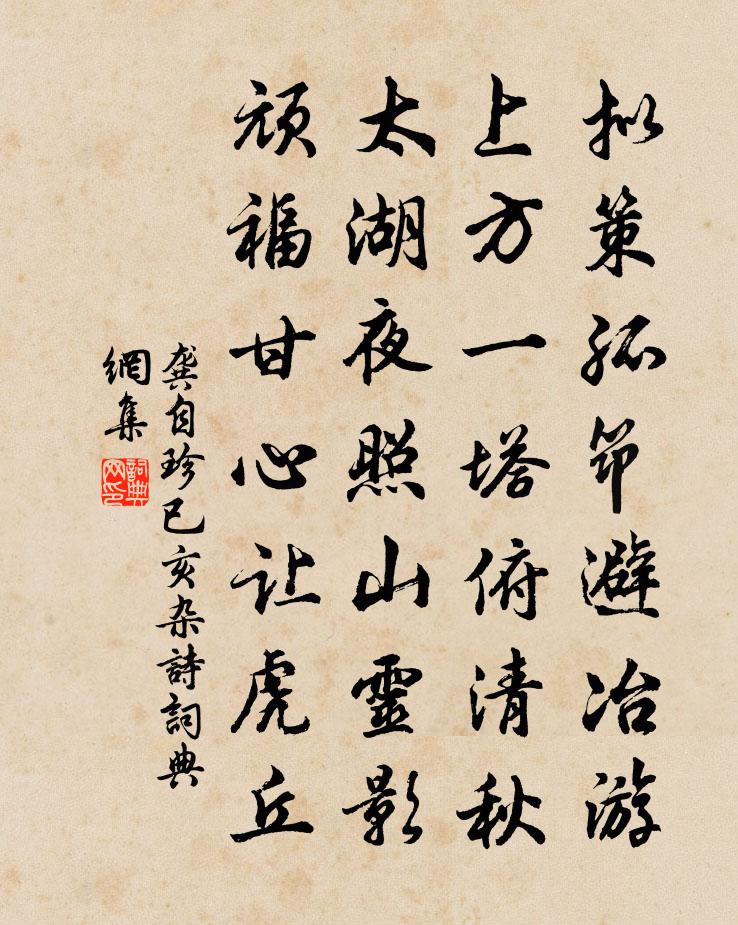 拟策孤筇避冶游
上方一塔俯清秋
太湖夜照山靈影
顽福甘心让虎丘
龚自珍己亥杂詩詞典
網集
詞典网印